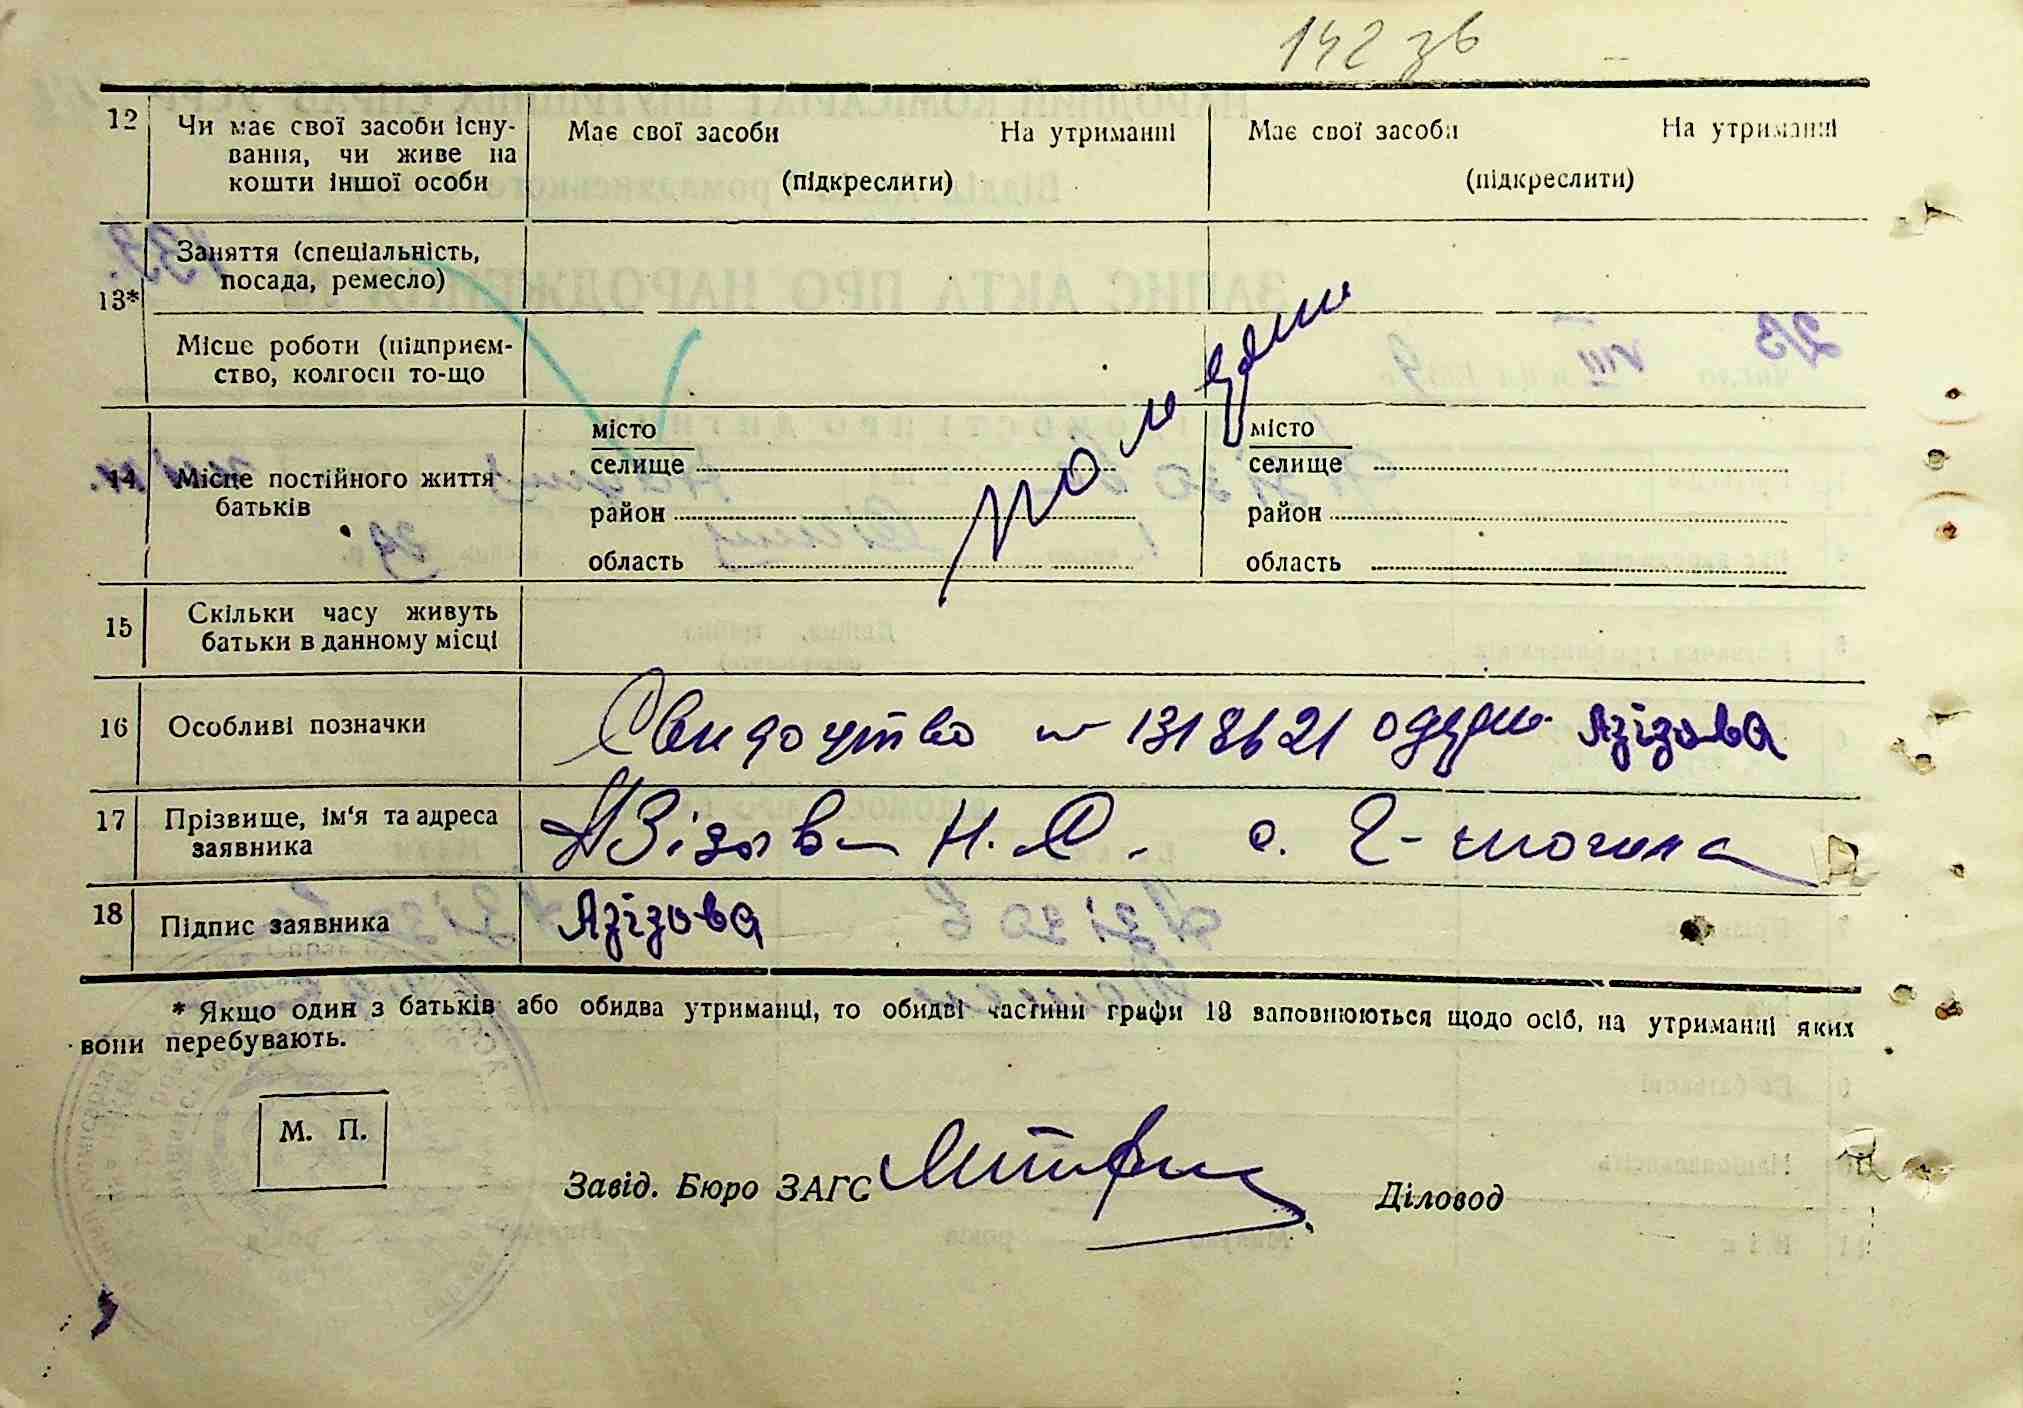 142 зв
12 Чи має свої засоби існу- Має свої засоби На утриманні Має свої засоби На утриманні
вання, чи живе на
кошти іншої особи (підкреслити) (підкреслити)
Заняття (спеціальність,
посада, ремесло)
13*
Місце роботи (підприєм-
ство, колгосп то-що
місто місто
14 Місце постійного життя селище селище
батьків район район
область область
15 Скільки часу живуть
батьки в данному місці
16 Особливі позначки Свидоцтво № 1318621 Азізова
17 Прізвище, ім'я та адреса Азізова Н. с.
заявника
18 Підпис заявника Азізова
* Якщо один з батьків або обидва утриманці, то обидві частини графи 13 заповнюються щодо осіб, на утриманні яких
вони перебувають.
М. П.
Завід. Бюро ЗАГС Діловод